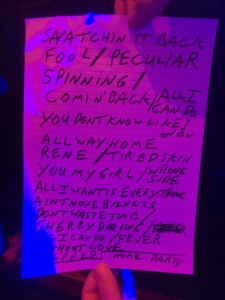 SNATCHIN IT BACK
FOOL/PECULIAR
SPINNING/
COMIN'BACK/ALL I CAN DO
YOU DONT KNOW LIKE I KNOW
ALL WAY HOME
RENE/TIRED SKIN
YOU MY GIRL/WRONG SIDE
ALL I WANT IS EVERYTHING
AINT NONE BIZNESS
DONT WASTE TIME/
SHERRY DARLING/
ALL I CAN DO/FEVER
WITHOUT LOVE
HOME PARTY